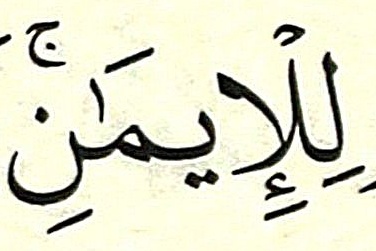 لِلْإِيمَٰنِۚ